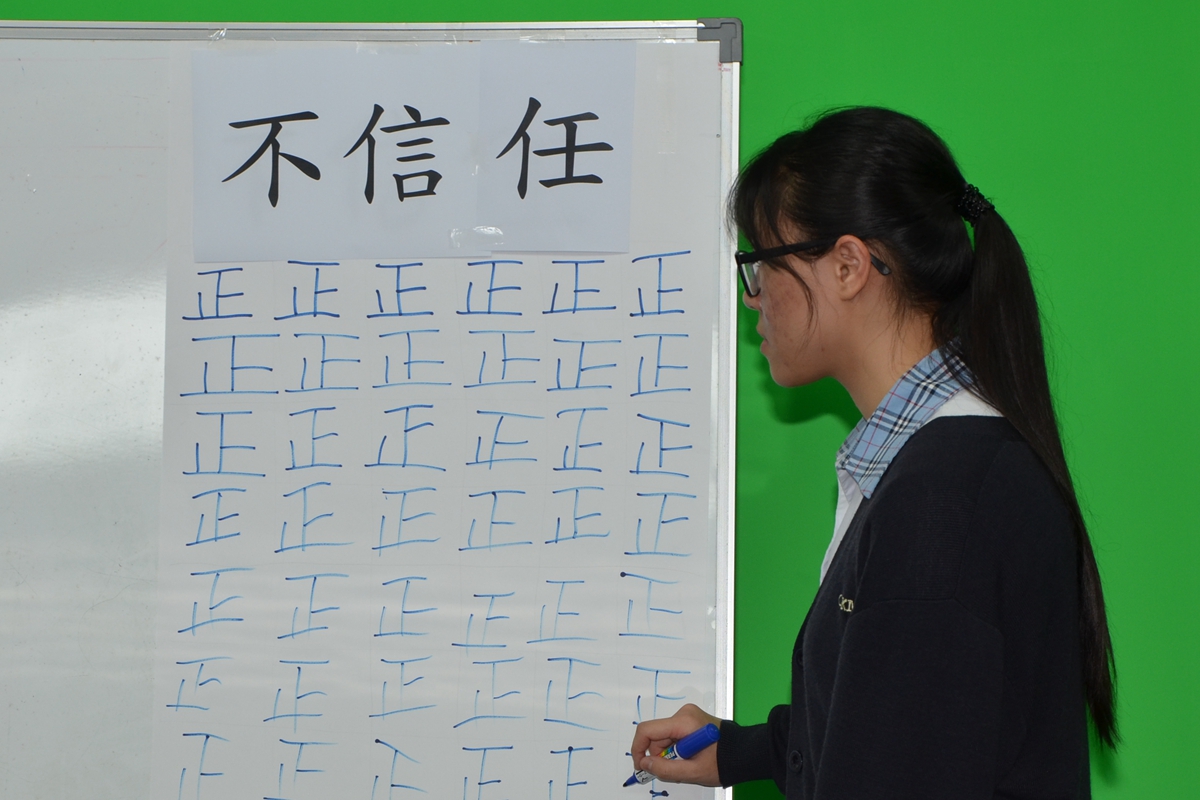 不信任
正正正正正正
正正正正正正
正正正正正正
正正正正正正
正正正正正正
正正正正正正
正正正正正